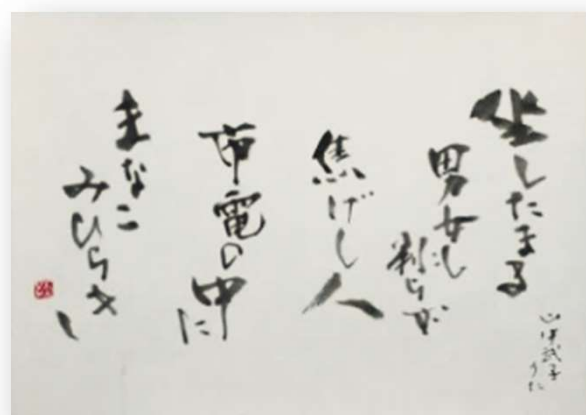 坐したまま
男女も
判らず
焦げし人
市電の中
に
まなこ
みひらき
し
子
うた